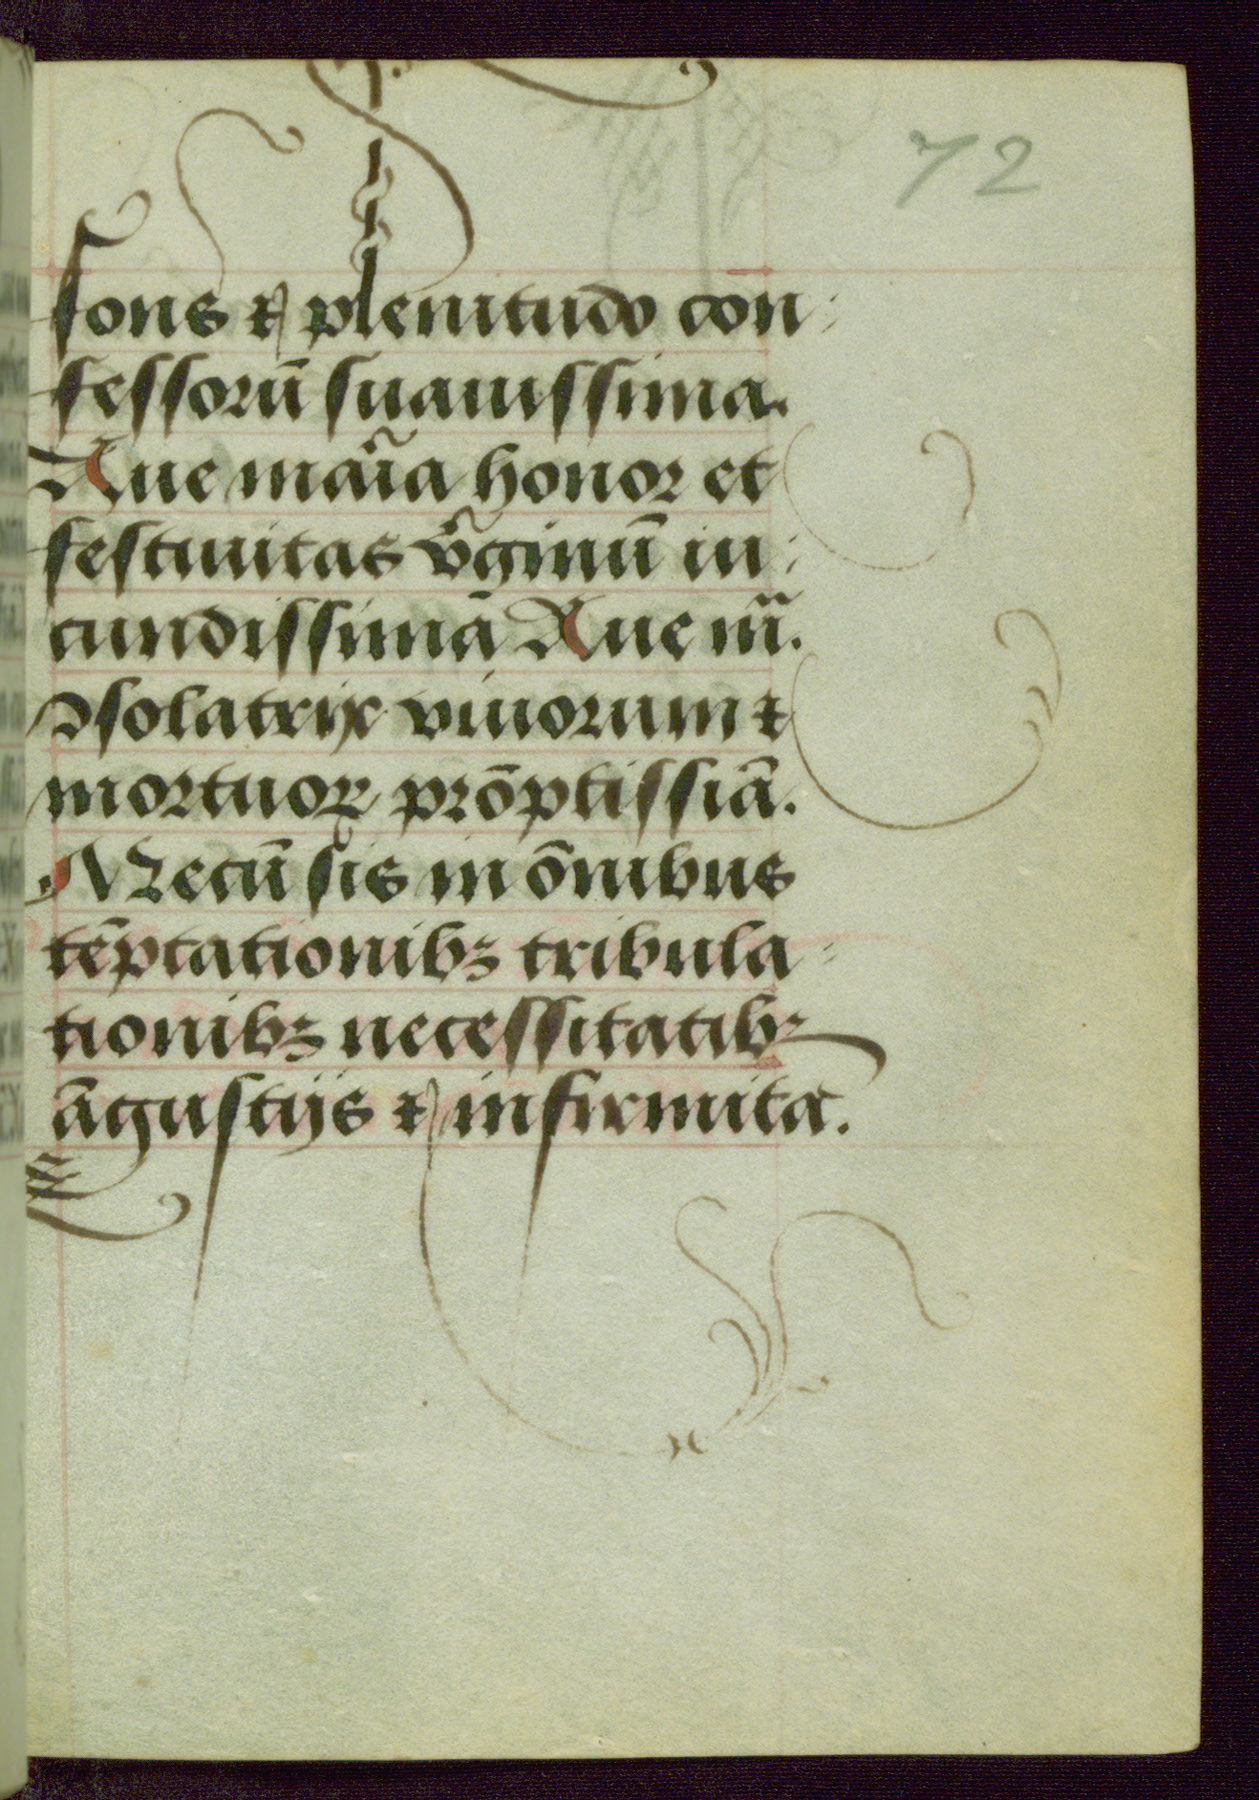 72
fons ⁊ plenitudo con
fessorū suauissima.
Aue mar̄ia honor et
festiuitas v̄ginū iu
cundissimā Aue m̄.
ꝯsolatrix viuorum ⁊
mortuoꝝ prōptissiā.
Mecū sis in ōnibus
tēptationibꝫ tribula
tionibꝫ necessitatibꝫ
āgustijs ⁊ infirmita.